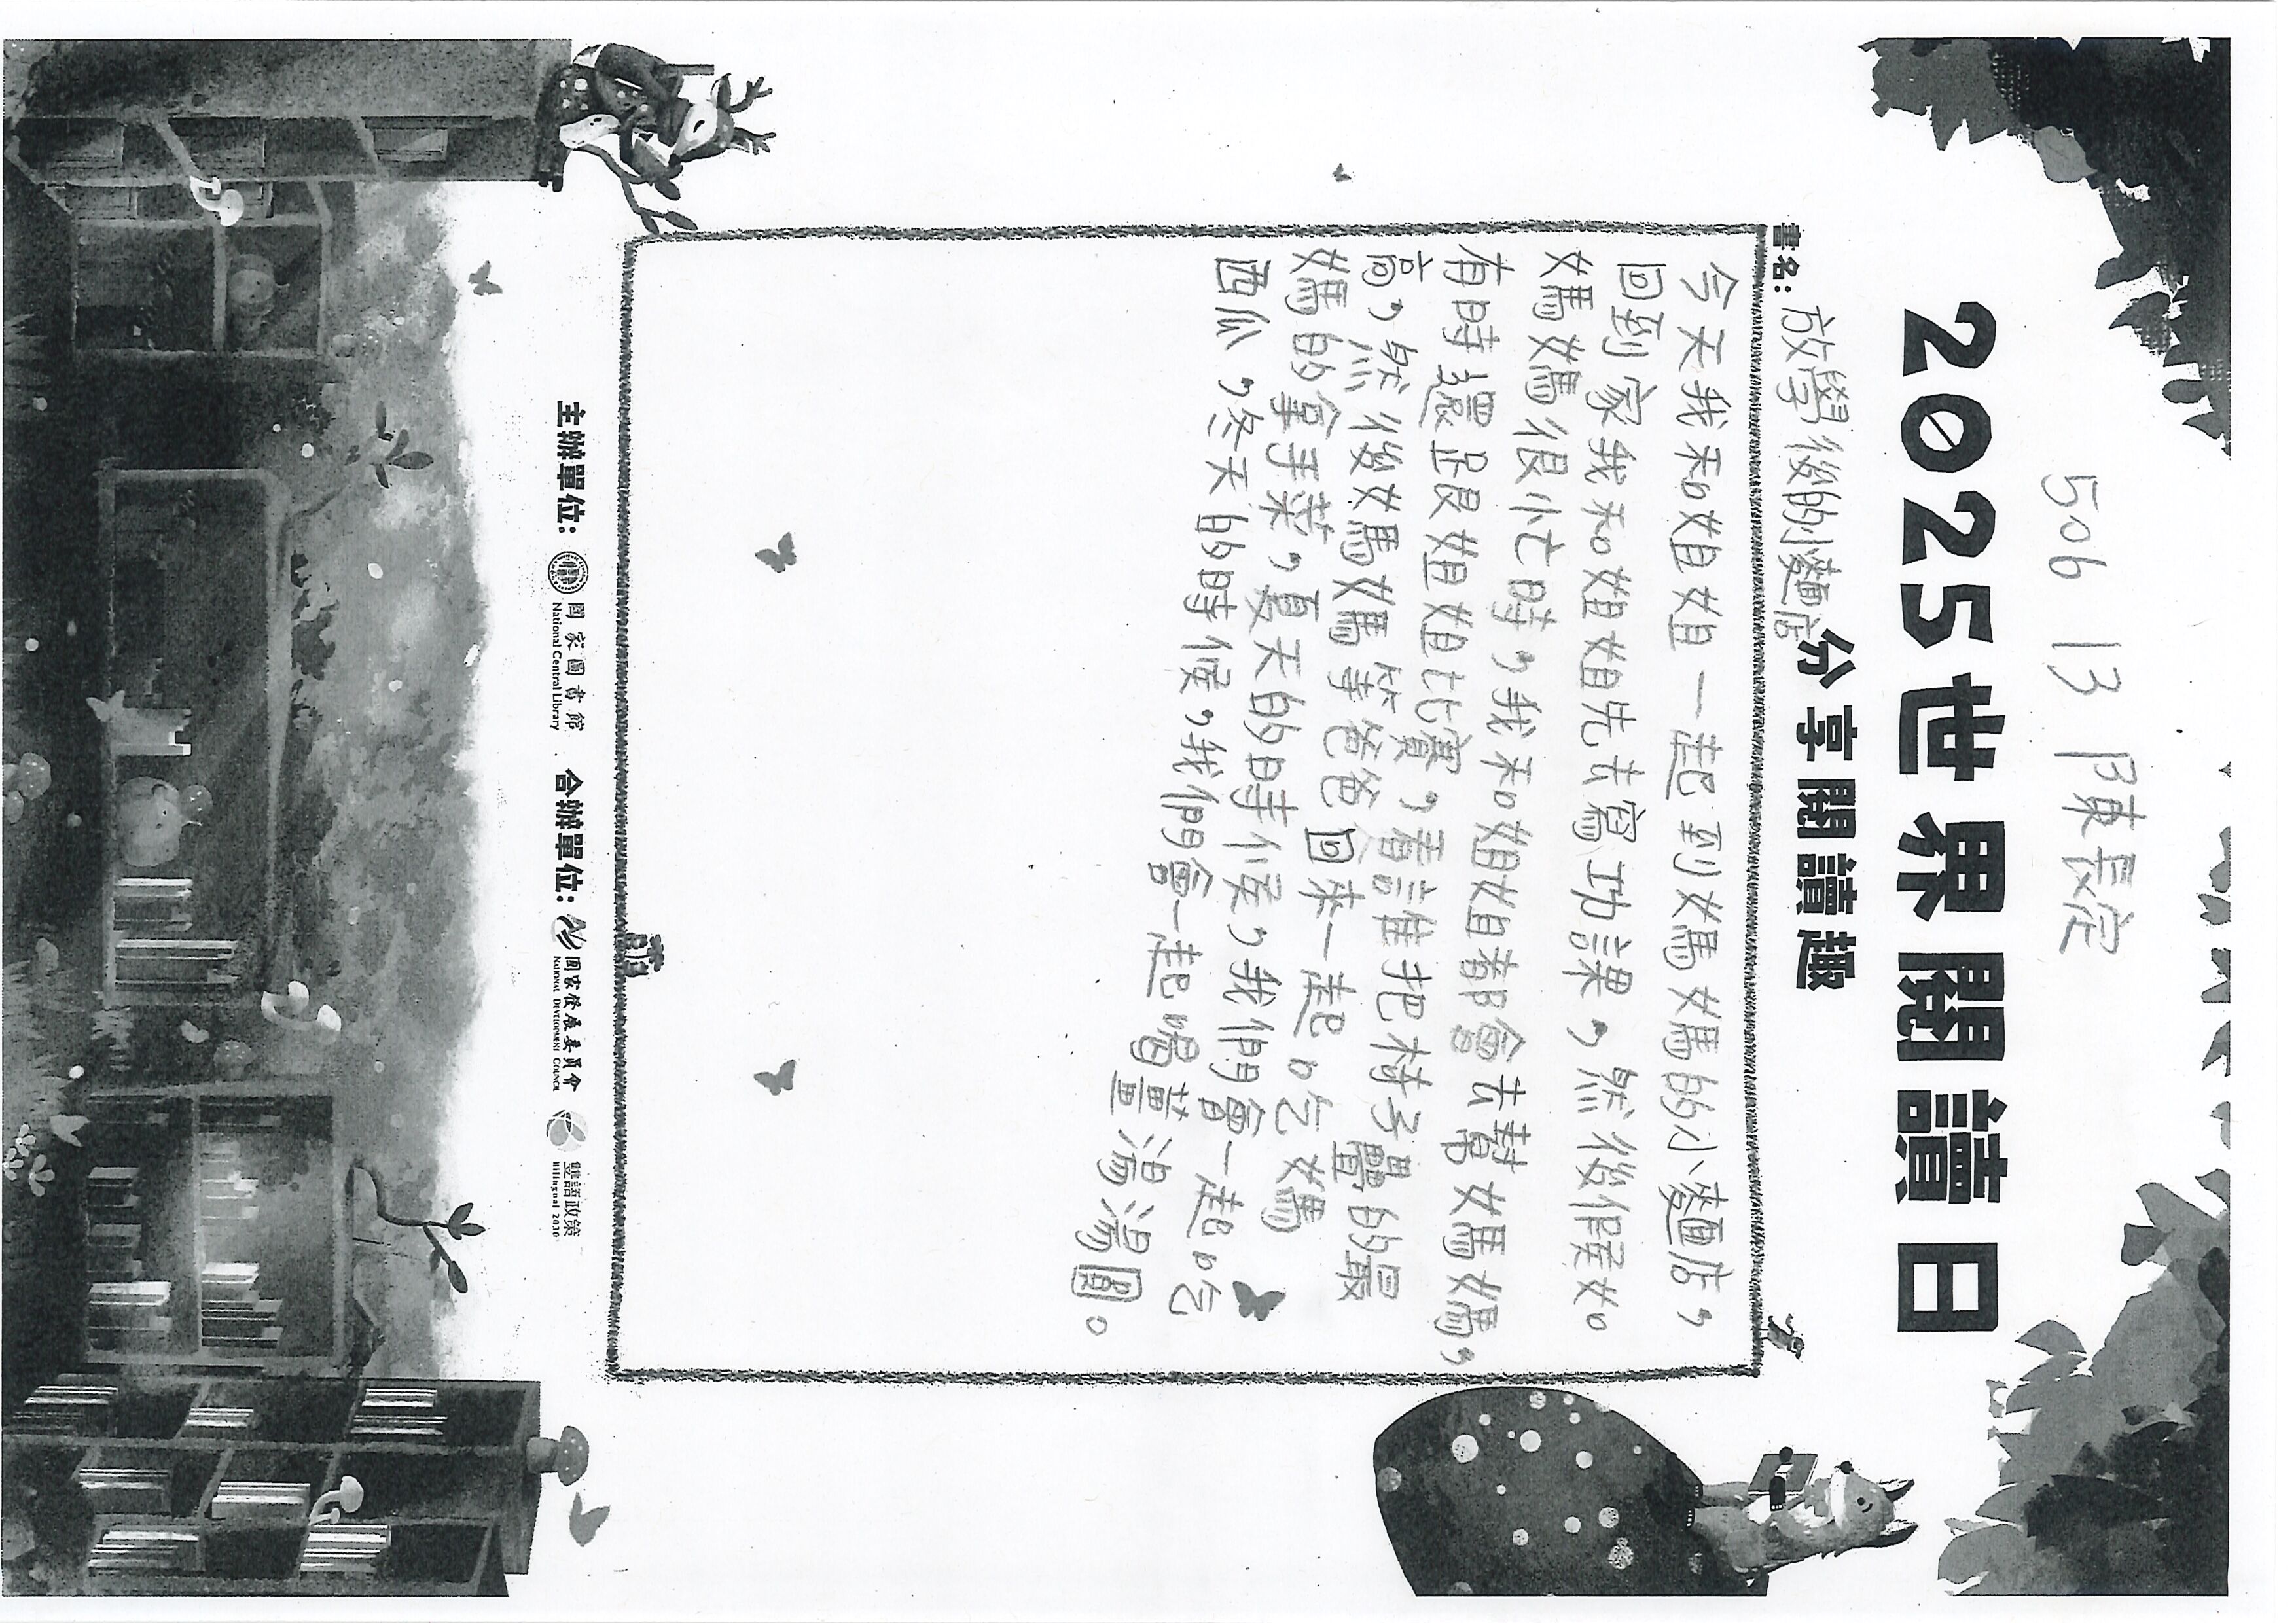 506 13 陳長定
2025世界閱讀日
分享閱讀趣
書名: 放學後的小麵店
今天我和姐姐一起到媽媽的小麵店，
回到家我和姐姐先去寫功課，然後假如
媽媽很小忙時，我和姐姐都會去幫媽媽，
有時還跟姐姐比賽，看誰把椅子疊的最
高，然後媽媽等爸爸回來一起吃媽
媽的拿手菜，夏天的時候，我們會一起吃
西瓜，冬天的時候，我們會一起喝薑湯湯圓。
主辦單位: 國家圖書館 National Central Library
合辦單位: 國家發展委員會 National Development Council
雙語政策 Bilingual 2030